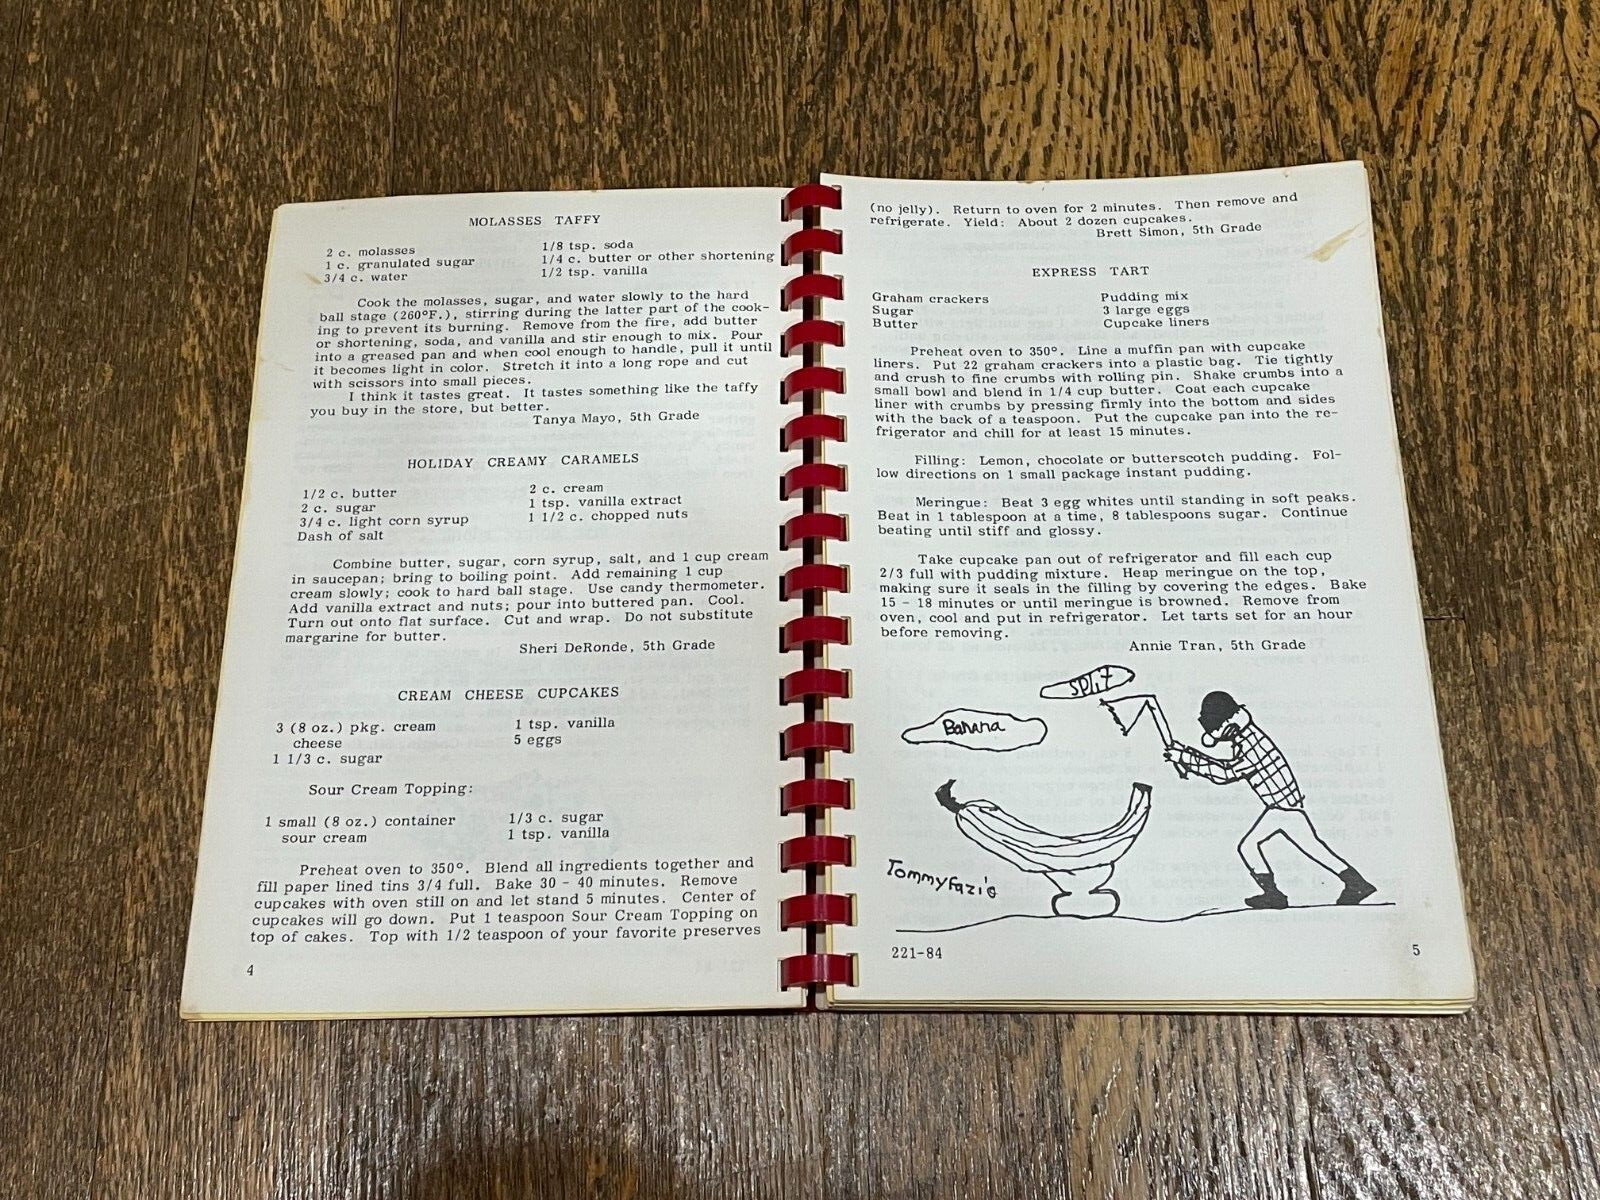 MOLASSES TAFFY
2 c. molasses
1 c. granulated sugar
3/4 c. water
1/8 tsp. soda
1/4 c. butter or other shortening
1/2 tsp. vanilla
Cook the molasses, sugar, and water slowly to the hard
ball stage (260°F.), stirring during the latter part of the cook-
ing to prevent its burning. Remove from the fire, add butter
or shortening, soda, and vanilla and stir enough to mix. Pour
into a greased pan and when cool enough to handle, pull it until
it becomes light in color. Stretch it into a long rope and cut
with scissors into small pieces.
I think it tastes great. It tastes something like the taffy
you buy in the store, but better.
Tanya Mayo, 5th Grade
HOLIDAY CREAMY CARAMELS
1/2 c. butter
2 c. sugar
3/4 c. light corn syrup
Dash of salt
2 c. cream
1 tsp. vanilla extract
1 1/2 c. chopped nuts
Combine butter, sugar, corn syrup, salt, and 1 cup cream
in saucepan; bring to boiling point. Add remaining 1 cup
cream slowly; cook to hard ball stage. Use candy thermometer.
Add vanilla extract and nuts; pour into buttered pan. Cool.
Turn out onto flat surface. Cut and wrap. Do not substitute
margarine for butter.
Sheri DeRonde, 5th Grade
CREAM CHEESE CUPCAKES
3 (8 oz.) pkg. cream
cheese
1 1/3 c. sugar
1 tsp. vanilla
5 eggs
Sour Cream Topping:
1 small (8 oz.) container
sour cream
1/3 c. sugar
1 tsp. vanilla
Preheat oven to 350°. Blend all ingredients together and
fill paper lined tins 3/4 full. Bake 30 - 40 minutes. Remove
cupcakes with oven still on and let stand 5 minutes. Center of
cupcakes will go down. Put 1 teaspoon Sour Cream Topping on
top of cakes. Top with 1/2 teaspoon of your favorite preserves
4
(no jelly). Return to oven for 2 minutes. Then remove and
refrigerate. Yield: About 2 dozen cupcakes.
Brett Simon, 5th Grade
EXPRESS TART
Graham crackers
Sugar
Butter
Pudding mix
3 large eggs
Cupcake liners
Preheat oven to 350°. Line a muffin pan with cupcake
liners. Put 22 graham crackers into a plastic bag. Tie tightly
and crush to fine crumbs with rolling pin. Shake crumbs into a
small bowl and blend in 1/4 cup butter. Coat each cupcake
liner with crumbs by pressing firmly into the bottom and sides
with the back of a teaspoon. Put the cupcake pan into the re-
frigerator and chill for at least 15 minutes.
Filling: Lemon, chocolate or butterscotch pudding. Fol-
low directions on 1 small package instant pudding.
Meringue: Beat 3 egg whites until standing in soft peaks.
Beat in 1 tablespoon at a time, 8 tablespoons sugar. Continue
beating until stiff and glossy.
Take cupcake pan out of refrigerator and fill each cup
2/3 full with pudding mixture. Heap meringue on the top,
making sure it seals in the filling by covering the edges. Bake
15 - 18 minutes or until meringue is browned. Remove from
oven, cool and put in refrigerator. Let tarts set for an hour
before removing.
Annie Tran, 5th Grade
Split
Banana
Tommy Fazio
221-84
5